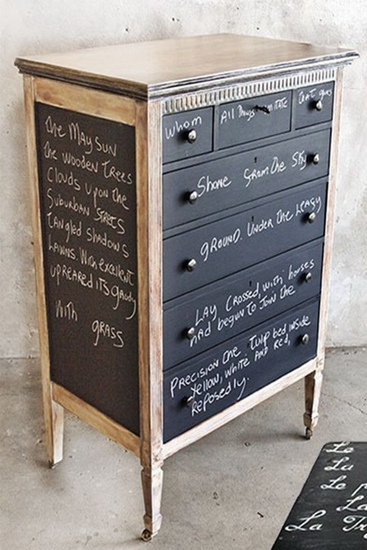 The May sun
the wooden Trees
Clouds upon the
Suburban Streets
Tangled Shadows
Lawns. With excellent
upreared its gaudy
With grass
Whom
All Things imitate
That glass
Shone from the sky
ground. Under the leafy
Lay Crossed with horses
had begun to Join the
Precision one. Tulip bed inside
Yellow, White And Red,
Reposedly.
Le
La
Le
La
La Tr